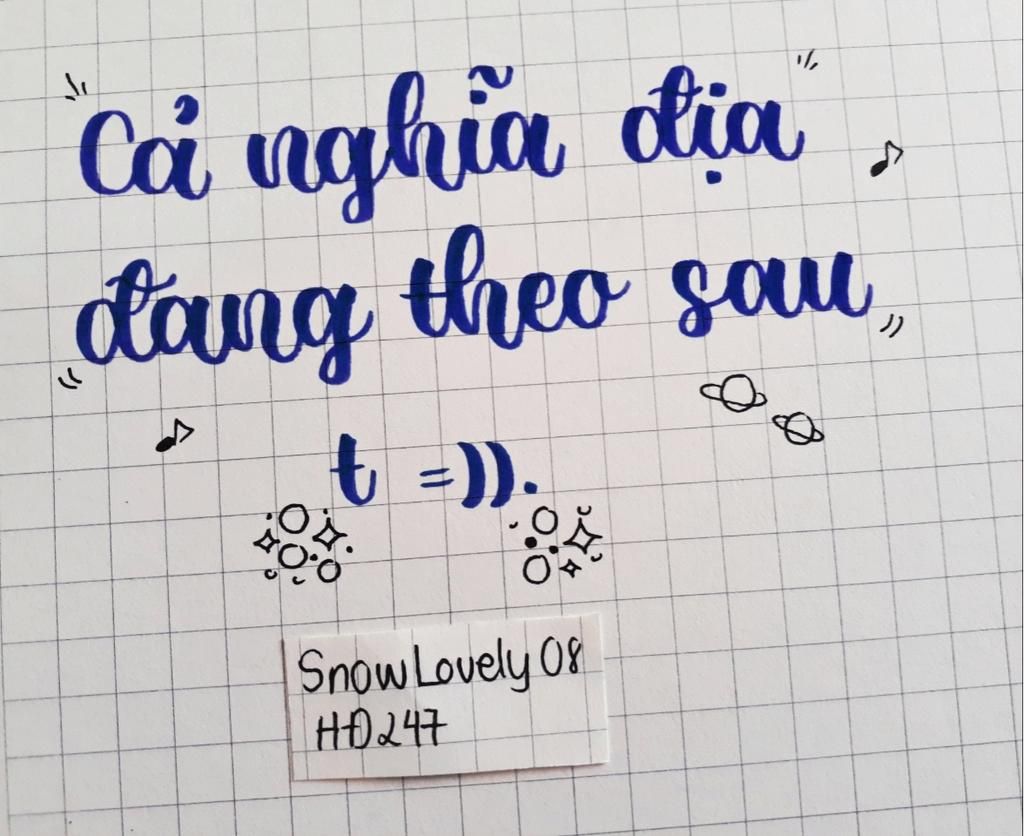 Cả nghĩa địa
đang theo sau
t =)).
SnowLovely08
HĐ247